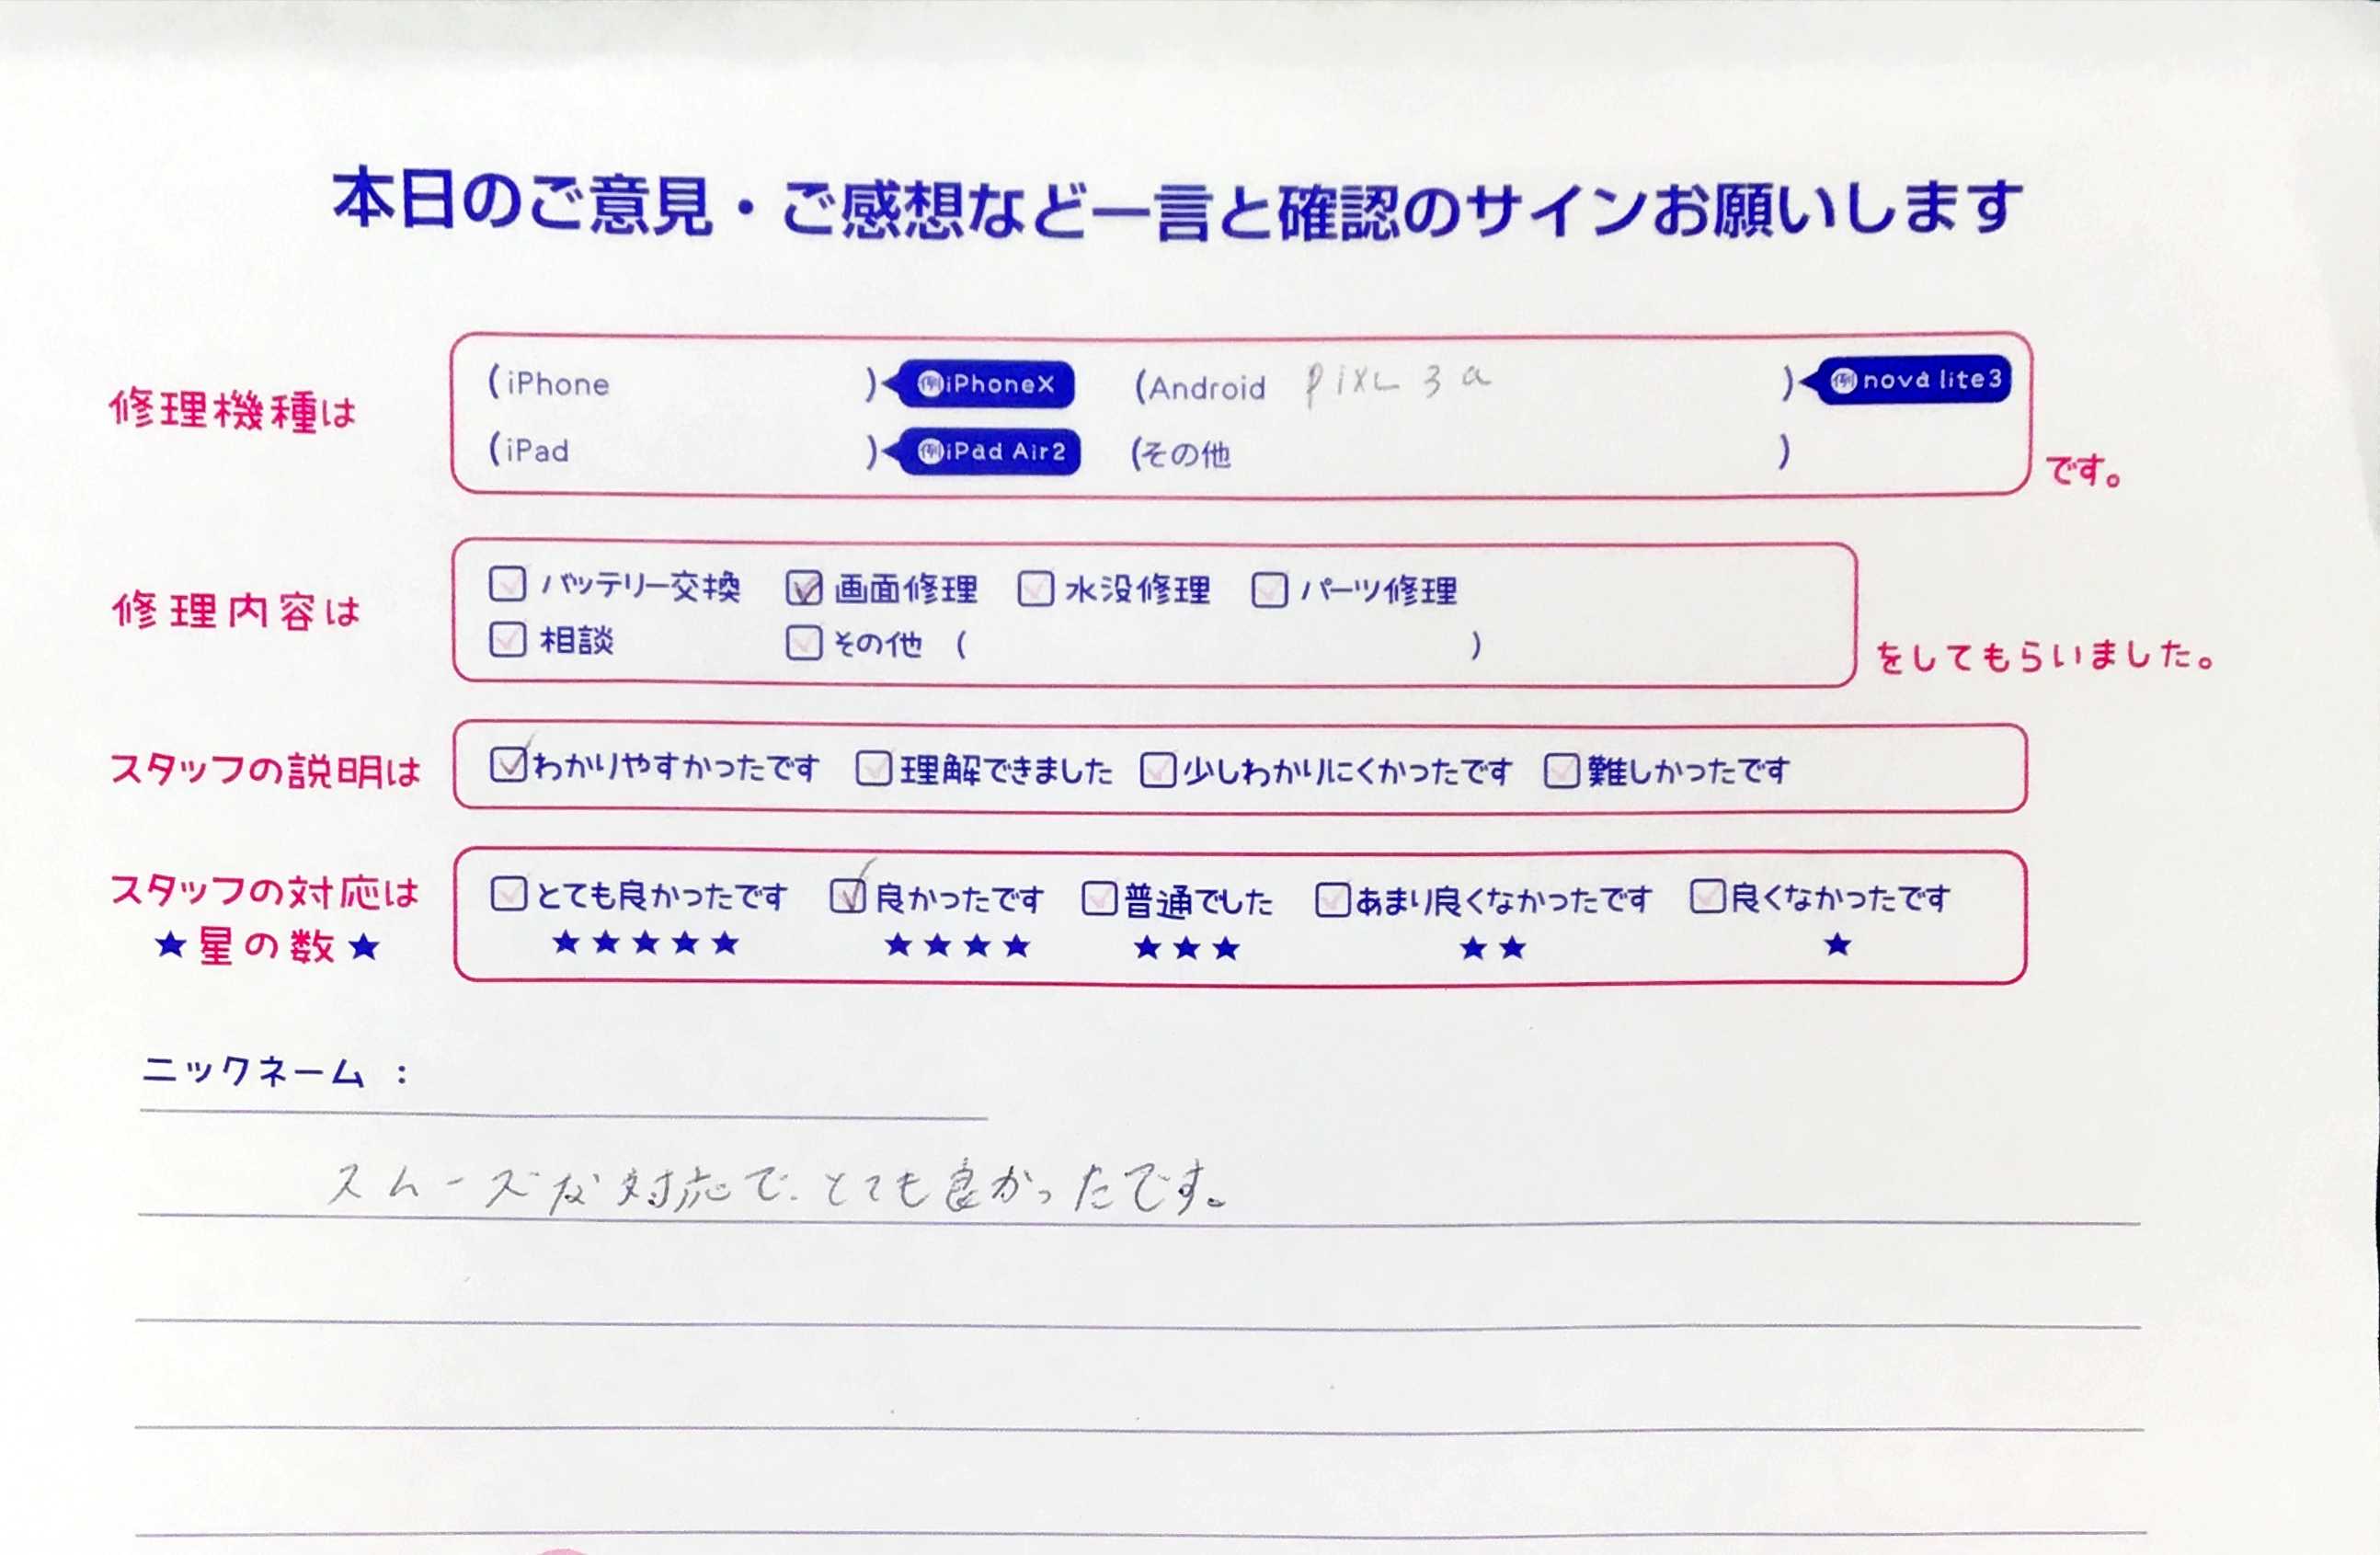 本日のご意見・ご感想など一言と確認のサインお願いします
修理機種は
(iPhone ) 例iPhoneX (Android PiXL 3a ) 例nova lite3
(iPad ) 例iPad Air2 (その他 ) です。
修理内容は
バッテリー交換 画面修理 水没修理 パーツ修理
相談 その他 ( ) をしてもらいました。
スタッフの説明は わかりやすかったです 理解できました 少しわかりにくかったです 難しかったです
スタッフの対応は とても良かったです 良かったです 普通でした あまり良くなかったです 良くなかったです
★星の数★ ★★★★★ ★★★★ ★★★ ★★ ★
ニックネーム :
スムーズな対応で、とても良かったです。